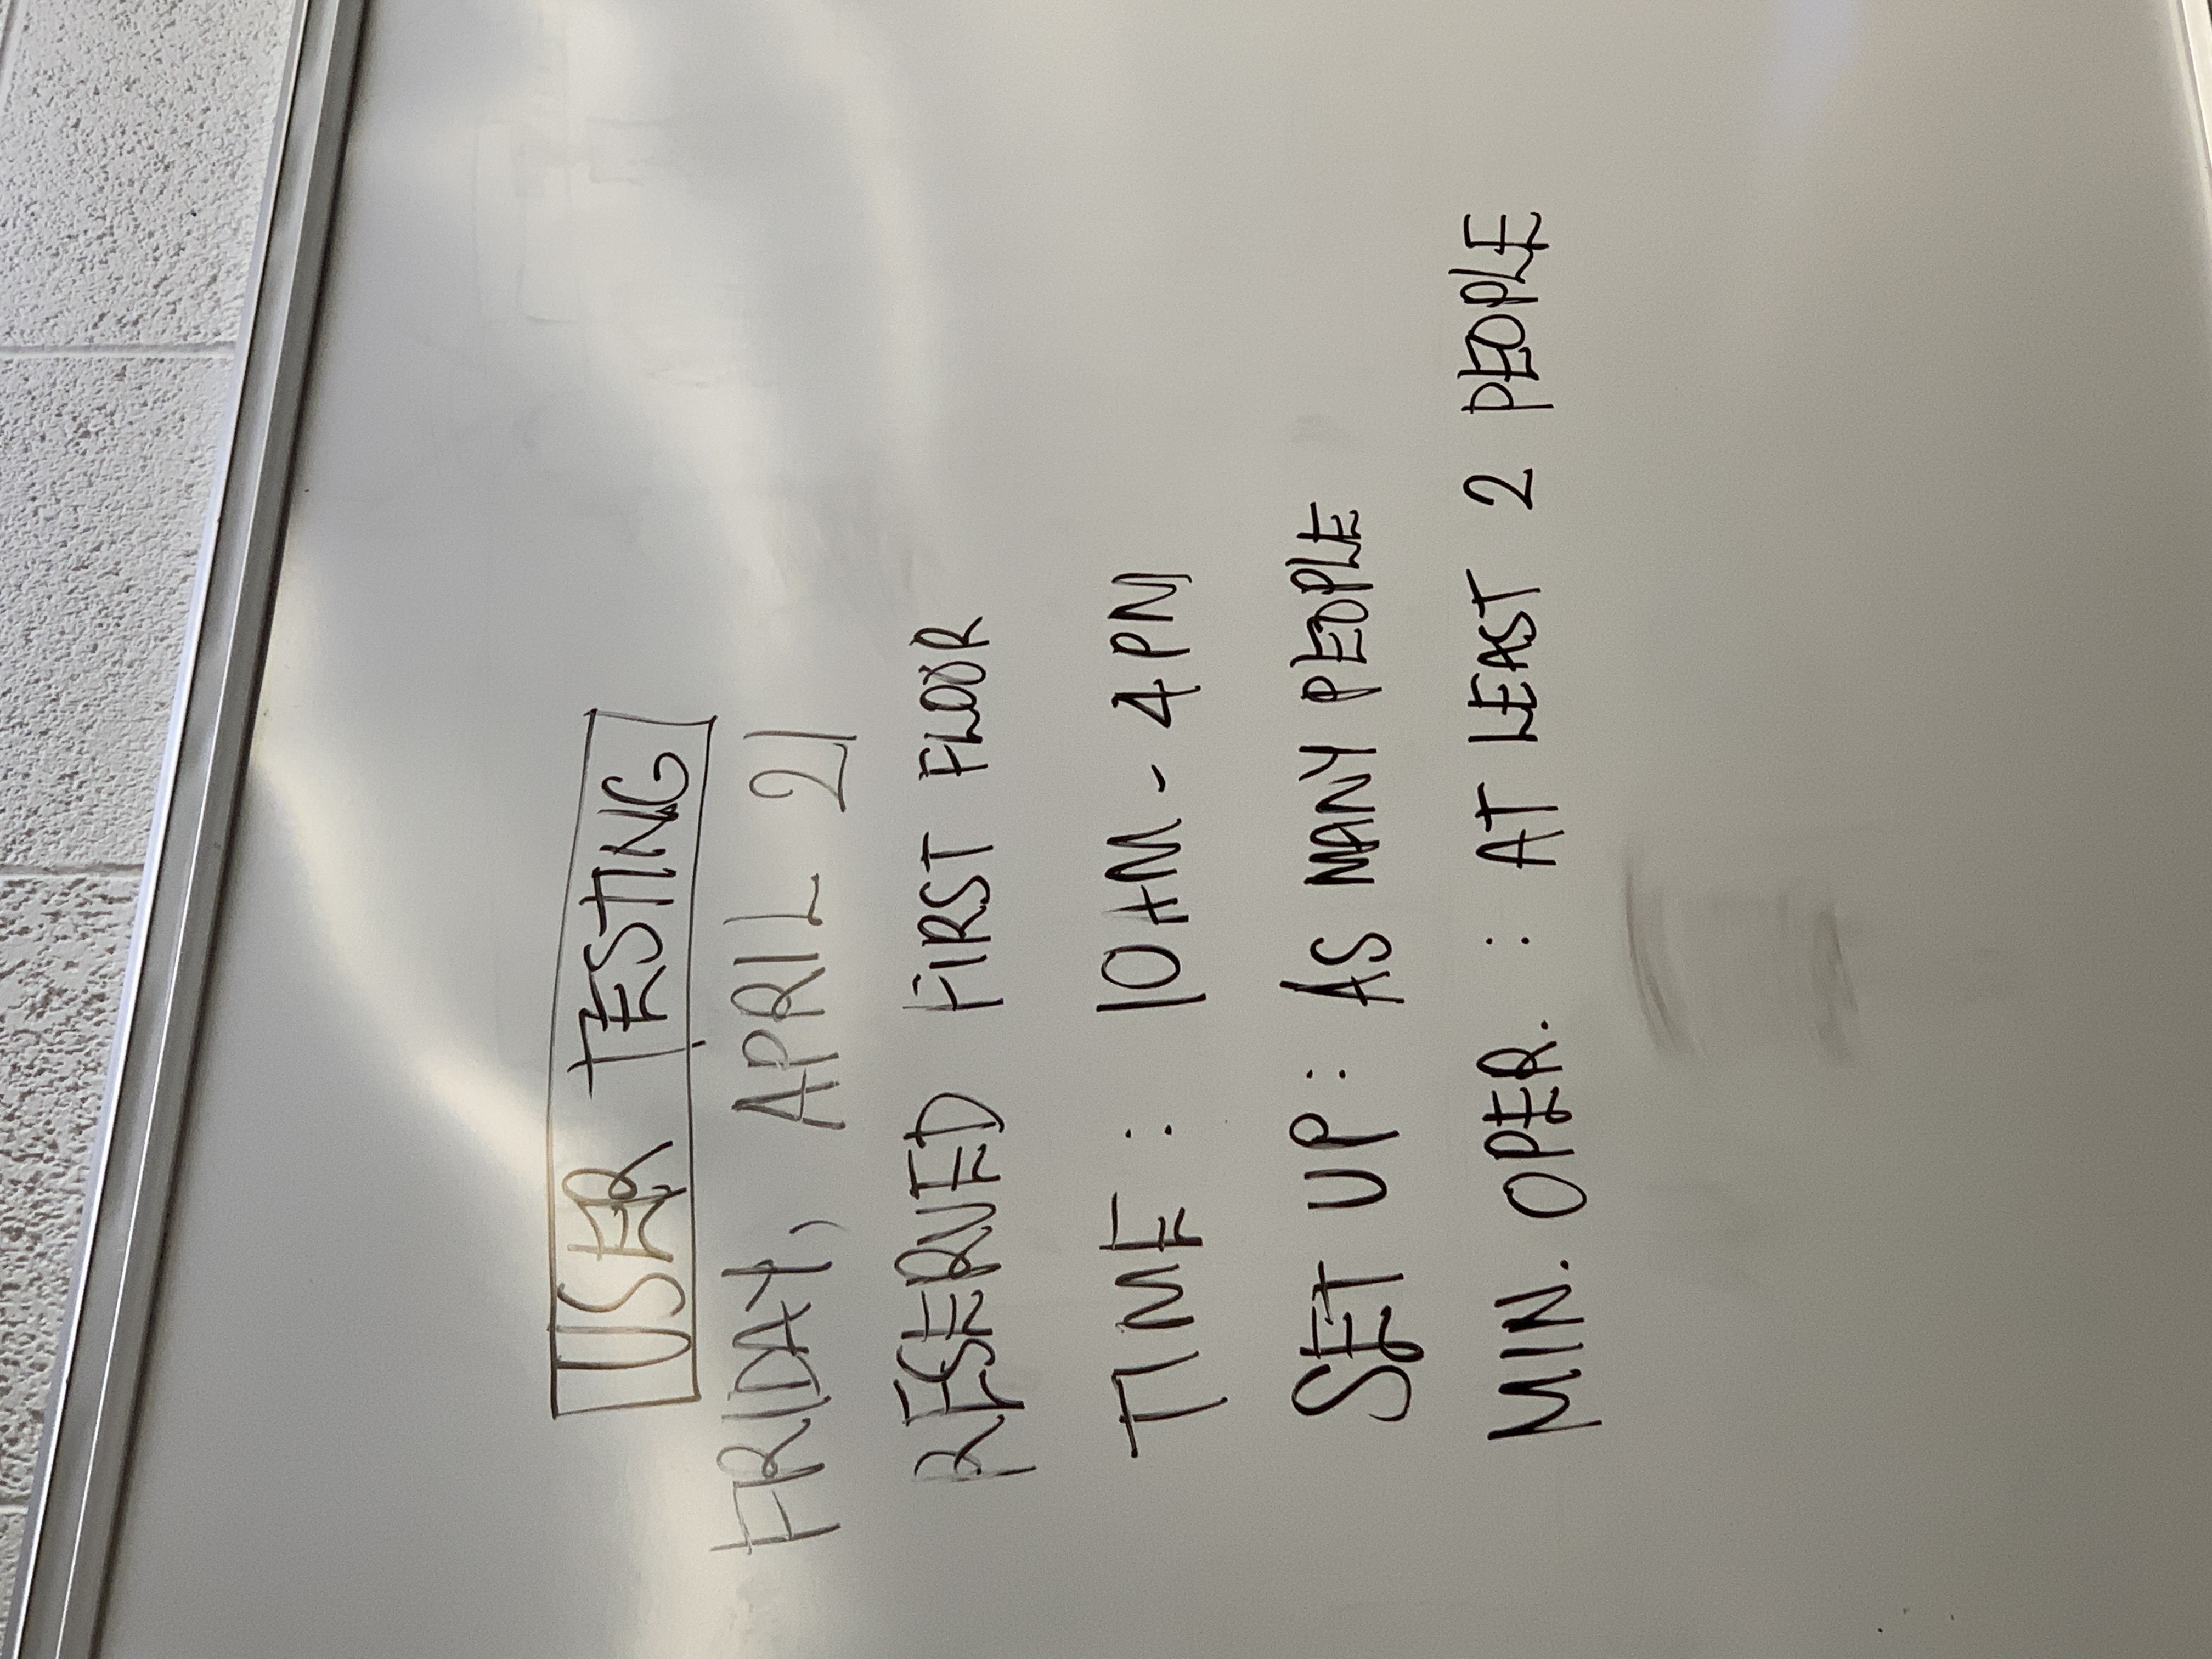 USER TESTING
FRIDAY, APRIL 21
RESERVED FIRST FLOOR
TIME : 10AM - 4PM
SET UP : AS MANY PEOPLE
MIN. OPER. : AT LEAST 2 PEOPLE